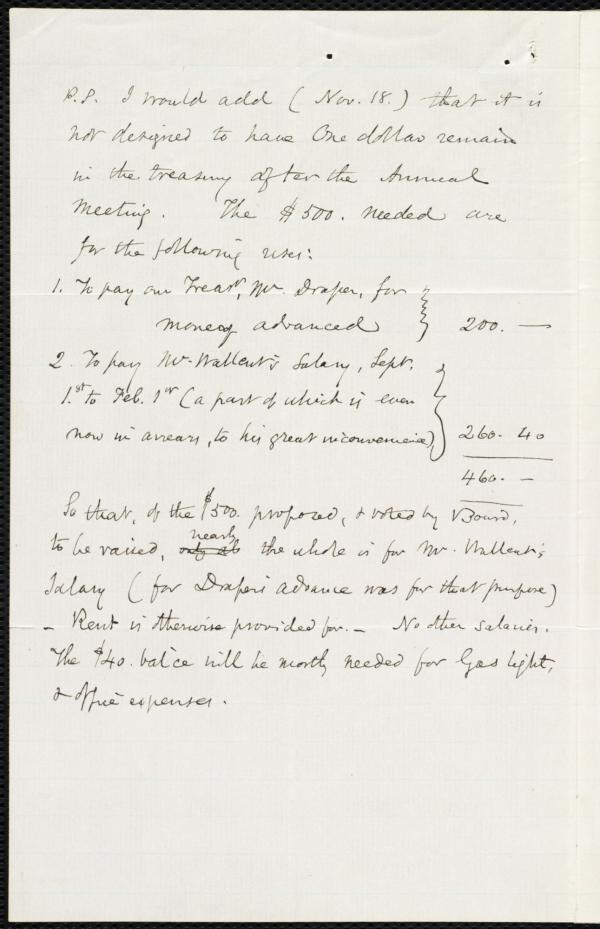 P.S. I would add (Nov. 18.) that it is
not designed to have One dollar remain
in the treasury after the Annual
Meeting. The $500. needed are
for the following uses:
1. To pay our Treasr, Mr. Draper, for
money advanced } 200. —
2. To pay Mr. Wallcut's Salary, Sept.
1.st to Feb. 1st (a part of which is even
now in arrears, to his great inconvenience), } 260. 40
460. —
So that, of the $500. proposed, & voted by Board,
to be raised, nearly the whole is for Mr. Wallcut's
Salary (for Draper's advance was for that purpose)
— Rent is otherwise provided for. — No other salaries.
The $40. bal'ce will be mostly needed for Gas light,
& office expenses.